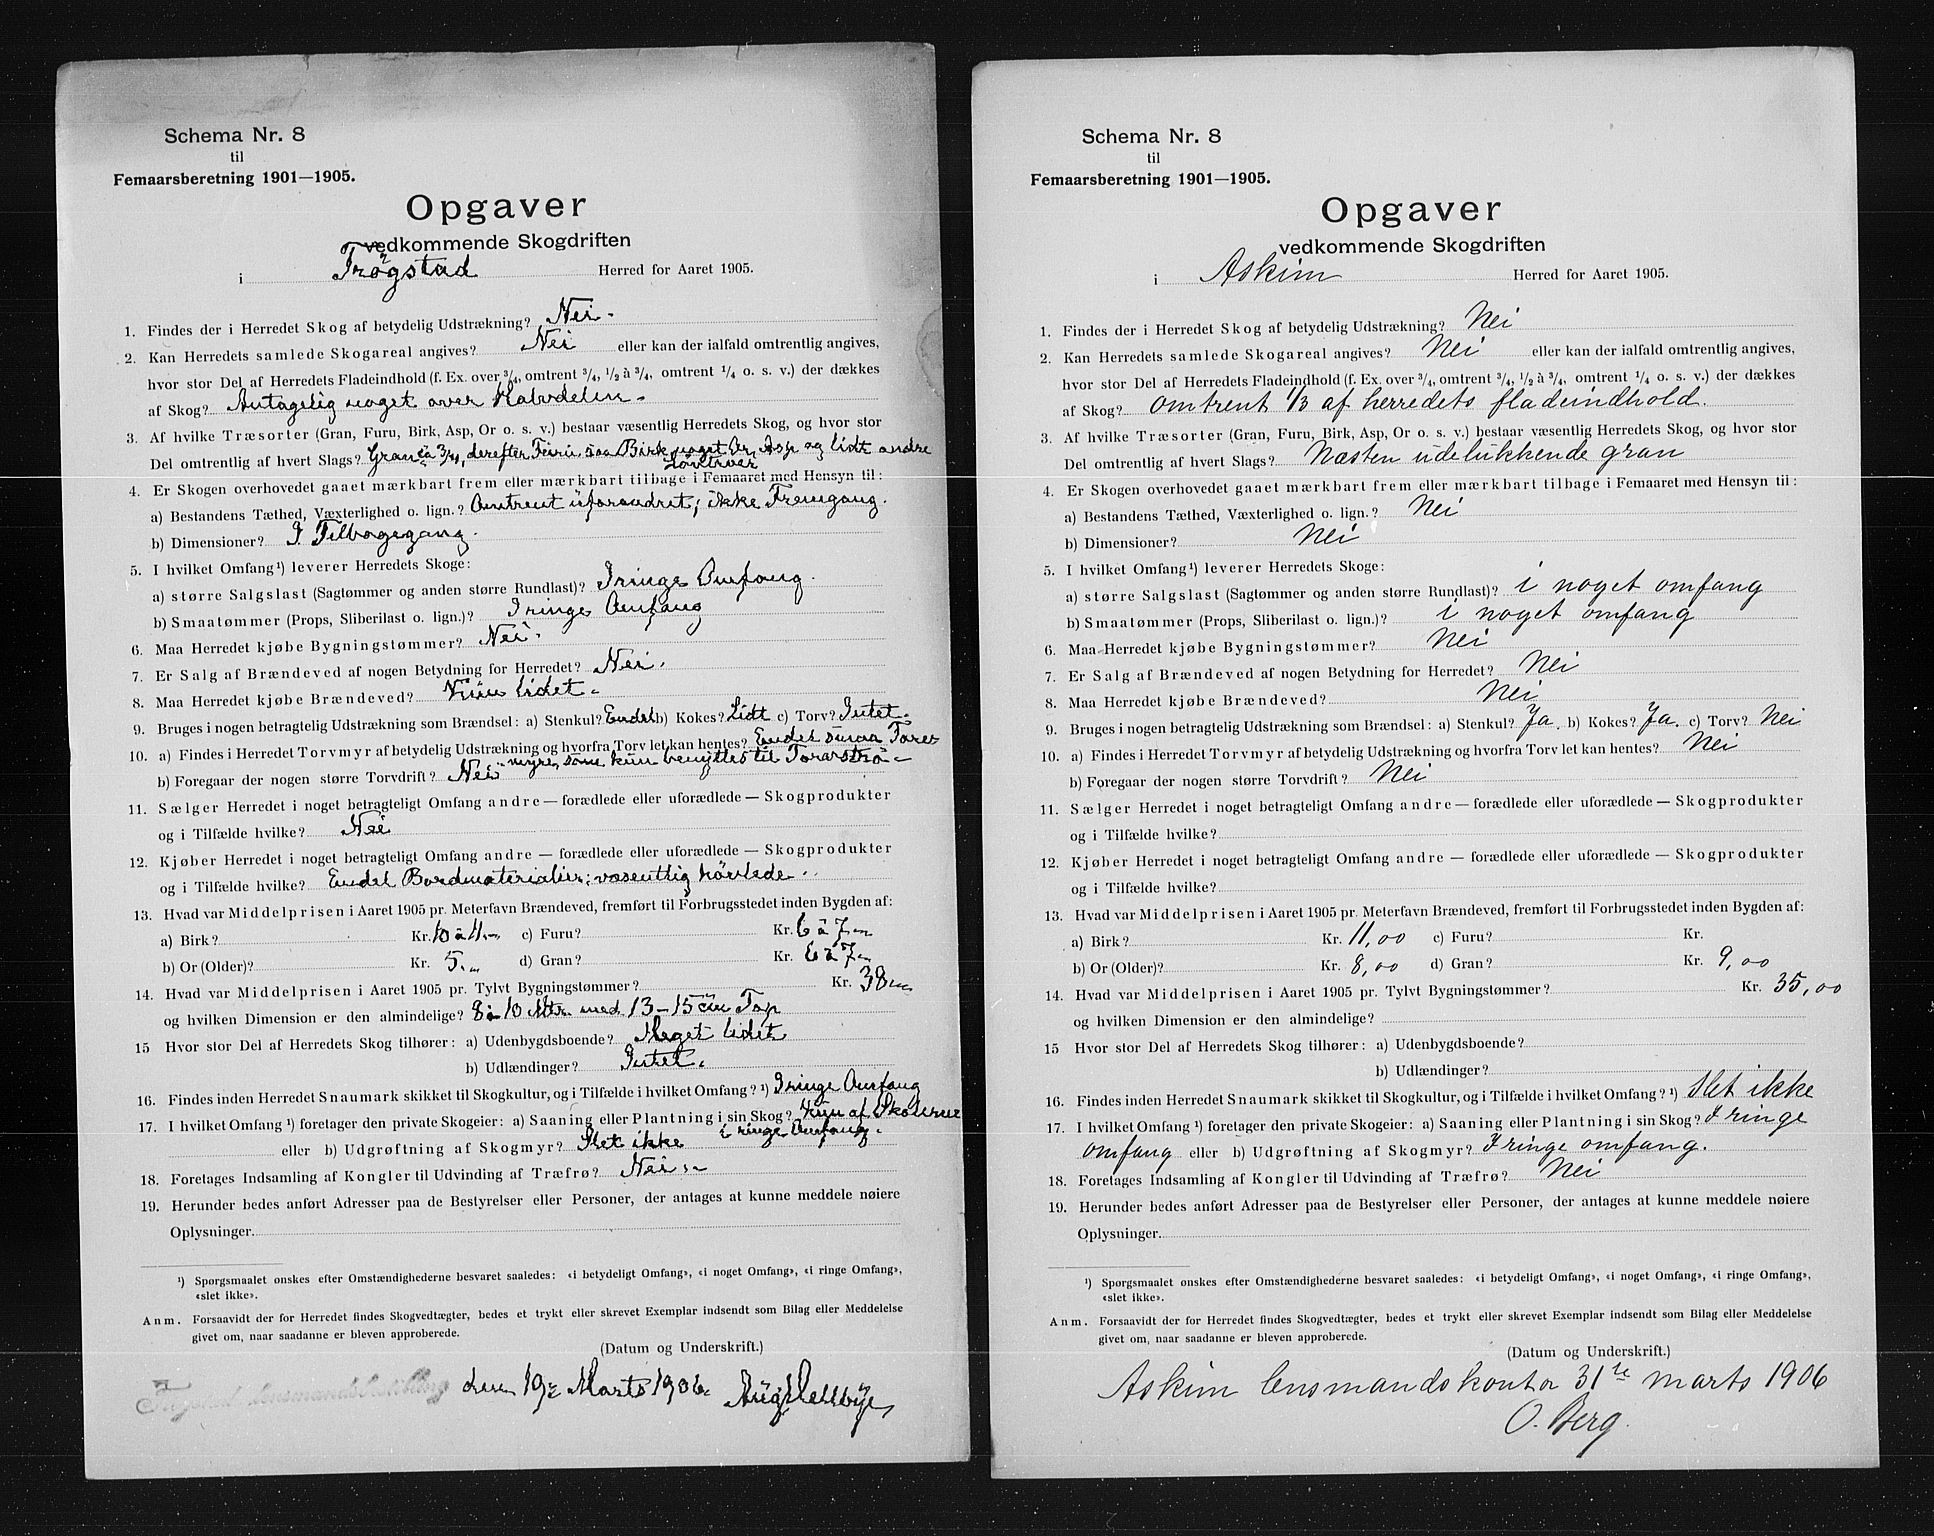 Schema Nr. 8
til
Femaarsberetning 1901—1905.
Opgaver
vedkommende Skogdriften
i Trøgstad Herred for Aaret 1905.
1. Findes der i Herredet Skog af betydelig Udstrækning? Nei.
2. Kan Herredets samlede Skogareal angives? Nei eller kan der ialfald omtrentlig angives,
hvor stor Del af Herredets Fladeindhold (f. Ex. over 3/4, omtrent 3/4, 1/2 à 3/4, omtrent 1/4 o. s. v.) der dækkes
af Skog? Antagelig noget over Halvdelen.
3. Af hvilke Træsorter (Gran, Furu, Birk, Asp, Or o. s. v.) bestaar væsentlig Herredets Skog, og hvor stor
Del omtrentlig af hvert Slags? Gran ca 3/4, derefter Furu, saa Birk, noget Or, Asp og lidt andre
Løvtræer
4. Er Skogen overhovedet gaaet mærkbart frem eller mærkbart tilbage i Femaaret med Hensyn til:
a) Bestandens Tæthed, Væxterlighed o. lign.? Omtrent uforandret; ikke Fremgang.
b) Dimensioner? I Tilbagegang.
5. I hvilket Omfang¹) leverer Herredets Skoge:
a) større Salgslast (Sagtømmer og anden større Rundlast)? I ringe Omfang.
b) Smaatømmer (Props, Sliberilast o. lign.)? I ringe Omfang
6. Maa Herredet kjøbe Bygningstømmer? Nei.
7. Er Salg af Brændeved af nogen Betydning for Herredet? Nei.
8. Maa Herredet kjøbe Brændeved? Kun lidet.
9. Bruges i nogen betragtelig Udstrækning som Brændsel: a) Stenkul? Endel b) Kokes? Lidt c) Torv? Intet.
10. a) Findes i Herredet Torvmyr af betydelig Udstrækning og hvorfra Torv let kan hentes? Endel smaa Torv
myre, som kun benyttes til Torvstrø.
b) Foregaar der nogen større Torvdrift? Nei
11. Sælger Herredet i noget betragteligt Omfang andre — forædlede eller uforædlede — Skogprodukter
og i Tilfælde hvilke? Nei
12. Kjøber Herredet i noget betragteligt Omfang andre — forædlede eller uforædlede — Skogprodukter
og i Tilfælde hvilke? Endel Bordmaterialier; væsentlig høvlede.
13. Hvad var Middelprisen i Aaret 1905 pr. Meterfavn Brændeved, fremført til Forbrugsstedet inden Bygden af:
a) Birk? Kr. 10 à 11.- c) Furu? Kr. 6 à 7.-
b) Or (Older)? Kr. 5.- d) Gran? Kr. 6 à 7.-
14. Hvad var Middelprisen i Aaret 1905 pr. Tylvt Bygningstømmer? Kr. 38.-
og hvilken Dimension er den almindelige? 8 à 10 Mtr. med 13-15 cm Top
15 Hvor stor Del af Herredets Skog tilhører: a) Udenbygdsboende? Meget lidet
b) Udlændinger? Intet.
16. Findes inden Herredet Snaumark skikket til Skogkultur, og i Tilfælde i hvilket Omfang? ¹) I ringe Omfang
17. I hvilket Omfang ¹) foretager den private Skogeier: a) Saaning eller Plantning i sin Skog? Kun af Skolerne
i ringe Omfang.
eller b) Udgrøftning af Skogmyr? Slet ikke
18. Foretages Indsamling af Kongler til Udvinding af Træfrø? Nei.
19. Herunder bedes anført Adresser paa de Bestyrelser eller Personer, der antages at kunne meddele nøiere
Oplysninger.
¹) Spørgsmaalet ønskes efter Omstændighederne besvaret saaledes: «i betydeligt Omfang», «i noget Omfang», «i ringe Omfang»,
«slet ikke».
Anm. Forsaavidt der for Herredet findes Skogvedtægter, bedes et trykt eller skrevet Exemplar indsendt som Bilag eller Meddelelse
givet om, naar saadanne er bleven approberede.
(Datum og Underskrift.)
den 19de Marts 1906.
Schema Nr. 8
til
Femaarsberetning 1901—1905.
Opgaver
vedkommende Skogdriften
i Askim Herred for Aaret 1905.
1. Findes der i Herredet Skog af betydelig Udstrækning? Nei
2. Kan Herredets samlede Skogareal angives? Nei eller kan der ialfald omtrentlig angives,
hvor stor Del af Herredets Fladeindhold (f. Ex. over 3/4, omtrent 3/4, 1/2 à 3/4, omtrent 1/4 o. s. v.) der dækkes
af Skog? Omtrent 1/3 af herredets fladeindhold.
3. Af hvilke Træsorter (Gran, Furu, Birk, Asp, Or o. s. v.) bestaar væsentlig Herredets Skog, og hvor stor
Del omtrentlig af hvert Slags? Næsten udelukkende gran
4. Er Skogen overhovedet gaaet mærkbart frem eller mærkbart tilbage i Femaaret med Hensyn til:
a) Bestandens Tæthed, Væxterlighed o. lign.? Nei
b) Dimensioner? Nei
5. I hvilket Omfang¹) leverer Herredets Skoge:
a) større Salgslast (Sagtømmer og anden større Rundlast)? i noget omfang
b) Smaatømmer (Props, Sliberilast o. lign.)? i noget omfang
6. Maa Herredet kjøbe Bygningstømmer? Nei
7. Er Salg af Brændeved af nogen Betydning for Herredet? Nei
8. Maa Herredet kjøbe Brændeved? Nei
9. Bruges i nogen betragtelig Udstrækning som Brændsel: a) Stenkul? Ja. b) Kokes? Ja. c) Torv? Nei
10. a) Findes i Herredet Torvmyr af betydelig Udstrækning og hvorfra Torv let kan hentes? Nei
b) Foregaar der nogen større Torvdrift? Nei
11. Sælger Herredet i noget betragteligt Omfang andre — forædlede eller uforædlede — Skogprodukter
og i Tilfælde hvilke?
12. Kjøber Herredet i noget betragteligt Omfang andre — forædlede eller uforædlede — Skogprodukter
og i Tilfælde hvilke?
13. Hvad var Middelprisen i Aaret 1905 pr. Meterfavn Brændeved, fremført til Forbrugsstedet inden Bygden af:
a) Birk? Kr. 11,00 c) Furu? Kr.
b) Or (Older)? Kr. 8,00 d) Gran? Kr. 9,00
14. Hvad var Middelprisen i Aaret 1905 pr. Tylvt Bygningstømmer? Kr. 35,00
og hvilken Dimension er den almindelige?
15 Hvor stor Del af Herredets Skog tilhører: a) Udenbygdsboende?
b) Udlændinger?
16. Findes inden Herredet Snaumark skikket til Skogkultur, og i Tilfælde i hvilket Omfang? ¹) Slet ikke
17. I hvilket Omfang ¹) foretager den private Skogeier: a) Saaning eller Plantning i sin Skog? I ringe
omfang eller b) Udgrøftning af Skogmyr? I ringe omfang.
18. Foretages Indsamling af Kongler til Udvinding af Træfrø? Nei
19. Herunder bedes anført Adresser paa de Bestyrelser eller Personer, der antages at kunne meddele nøiere
Oplysninger.
¹) Spørgsmaalet ønskes efter Omstændighederne besvaret saaledes: «i betydeligt Omfang», «i noget Omfang», «i ringe Omfang»,
«slet ikke».
Anm. Forsaavidt der for Herredet findes Skogvedtægter, bedes et trykt eller skrevet Exemplar indsendt som Bilag eller Meddelelse
givet om, naar saadanne er bleven approberede.
(Datum og Underskrift.)
Askim lensmandskontor 31te marts 1906
O. Berg.